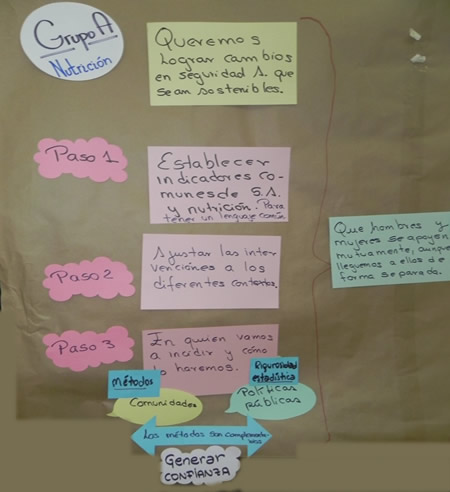 Grupo A
Nutrición
Queremos
lograr cambios
en seguridad A. que
sean sostenibles.
Paso 1
Establecer
indicadores co-
munes de S.A.
y nutrición. Para
tener un lenguaje común
Paso 2
Ajustar las inter
venciones a los
diferentes contextos.
Paso 3
En quien vamos
a incidir y cómo
lo haremos.
Métodos
Rigurosidad
estadística
Comunidades
Políticas
públicas
Los métodos son complementa-
rios
Generar
CONFIANZA
Que hombres y
mujeres se apoyen
mutuamente, aunque
lleguemos a ellos de
forma separada.